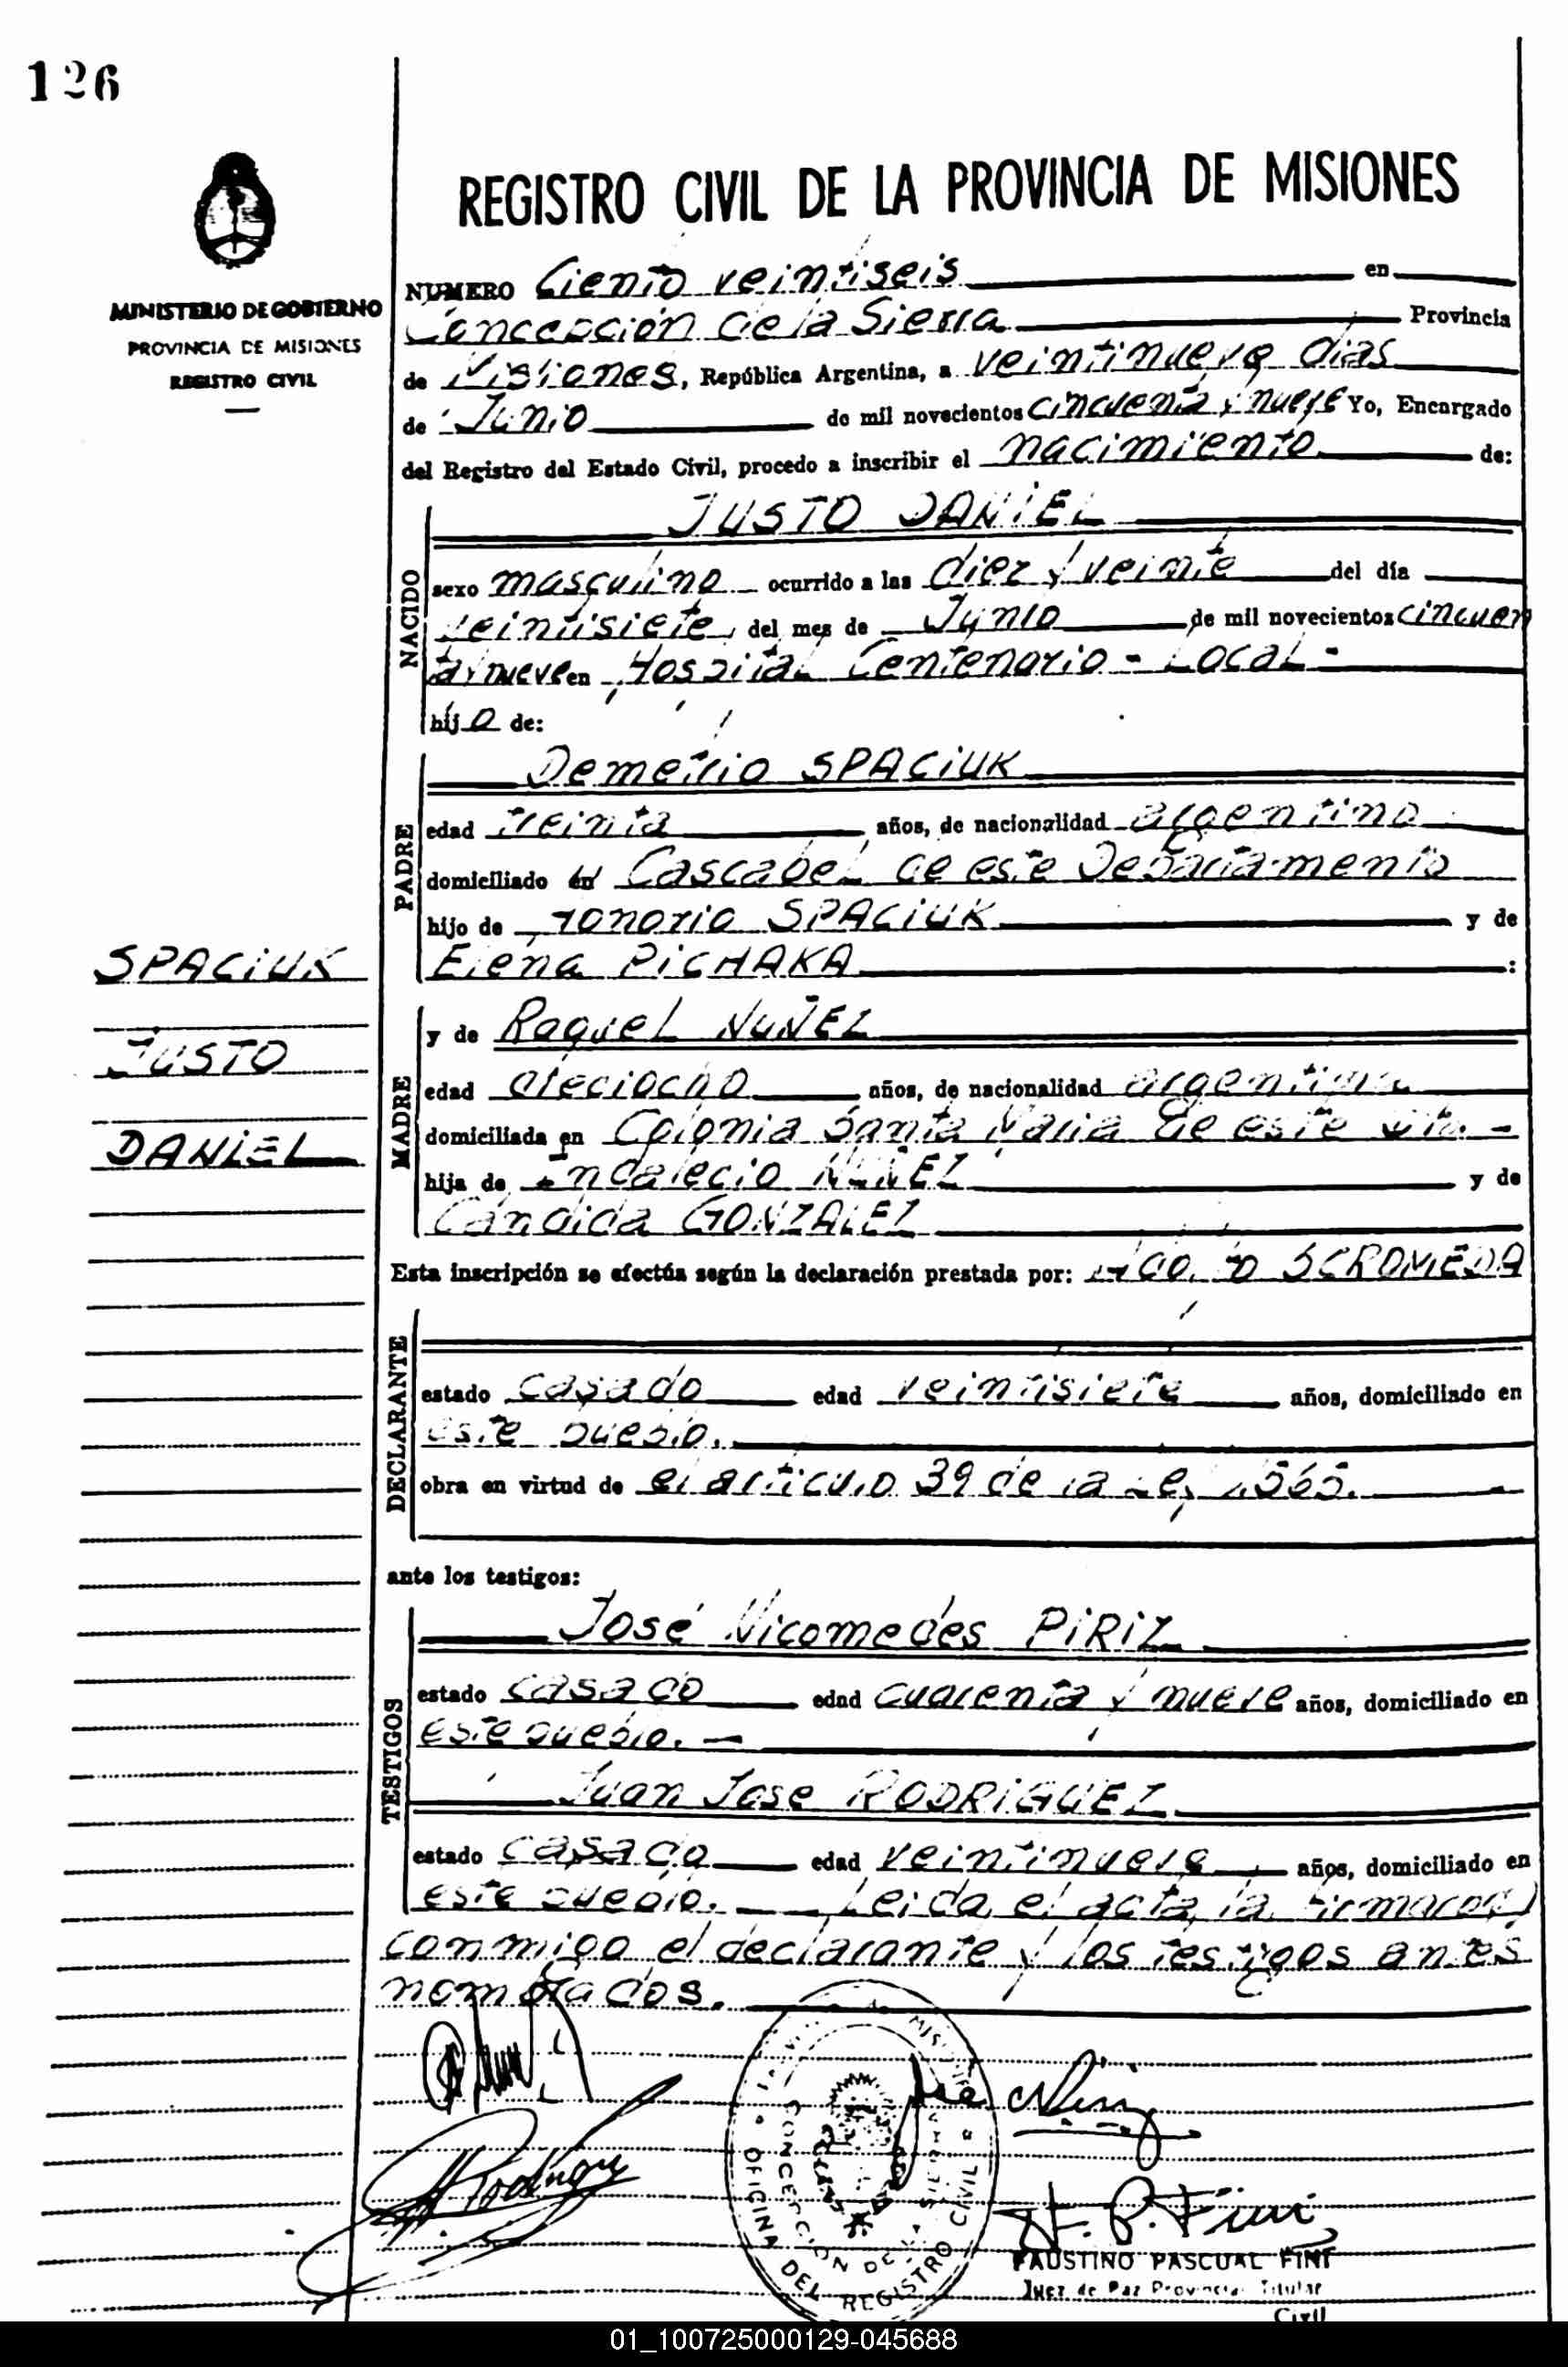 126
REGISTRO CIVIL DE LA PROVINCIA DE MISIONES
MINISTERIO DE GOBIERNO
PROVINCIA DE MISIONES
REGISTRO CIVIL
NUMERO Ciento veintiseis en
Concepción de la Sierra Provincia
de Misiones, República Argentina, a veintinueve dias
de Junio de mil novecientos cincuenta y nueve Yo, Encargado
del Registro del Estado Civil, procedo a inscribir el nacimiento de:
NACIDO
JUSTO DANIEL
sexo masculino ocurrido a las diez y veinte del día
veintisiete del mes de Junio de mil novecientos cincuen
ta y nueve en Hospital Centenario - Local -
hijo de:
PADRE
Demetrio SPACiUK
edad treinta años, de nacionalidad argentino
domiciliado en Cascabel de este Departamento
hijo de Honorio SPACiUK y de
Elena PiCHAKA :
SPACiUK
JUSTO
DANiEL
MADRE
y de Raquel NUÑEZ
edad dieciocho años, de nacionalidad argentina
domiciliada en Colonia Santa Maria de este Dto. -
hija de Indalecio NUÑEZ y de
Cándida GONZALEZ
Esta inscripción se efectúa según la declaración prestada por:
DECLARANTE
estado casado edad veintisiete años, domiciliado en
este pueblo.
obra en virtud de el articulo 39 de la Ley 1565.
ante los testigos:
TESTIGOS
José Nicomedes PiRiZ
estado casado edad cuarenta y nueve años, domiciliado en
este pueblo. -
Juan Jose RODRiGUEZ
estado casado edad veintinueve años, domiciliado en
este pueblo. Leida el acta, la firmaron
conmigo el declarante y los testigos antes
nombrados.
OFICINA DEL REGISTRO CIVIL
CONCEPCION DE LA SIERRA
F. P. Fini
FAUSTINO PASCUAL FINI
Juez de Paz Provincial Titular
Civil
01_100725000129-045688